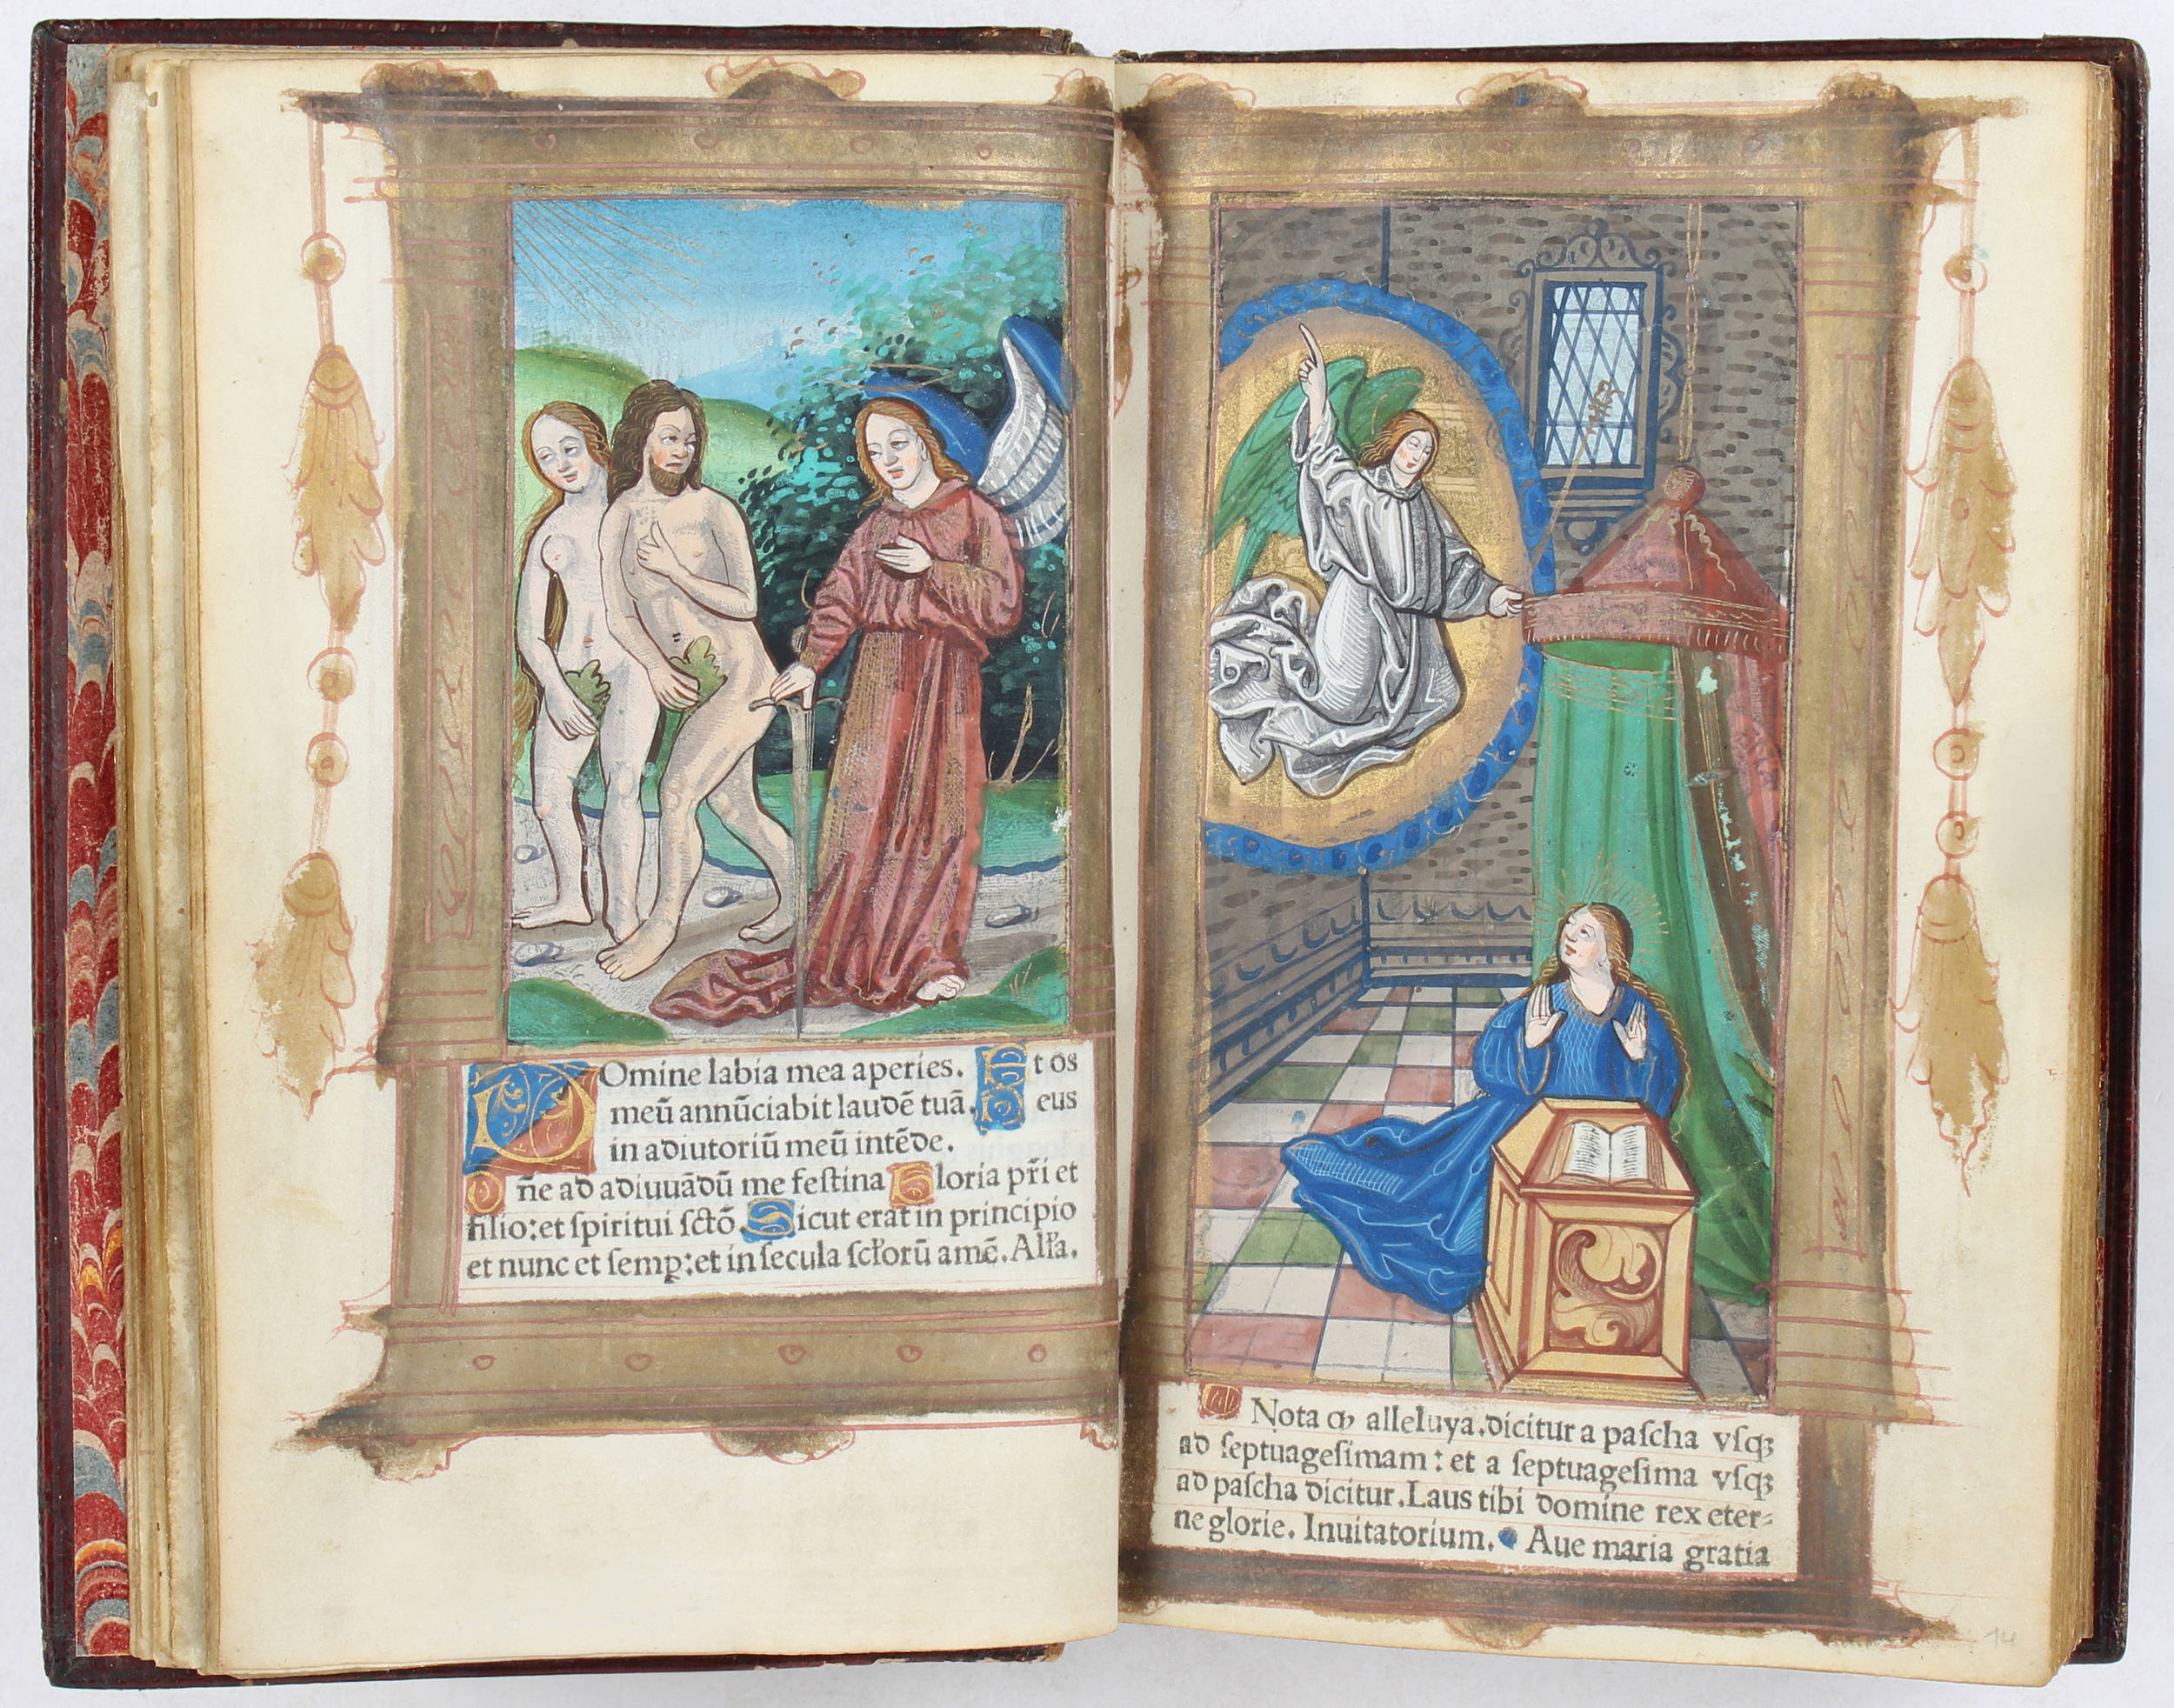 DOmine labia mea aperies. Et os
meū annūciabit laudē tuā. Deus
in adiutoriū meū intēde.
Dn̄e ad adiuuādū me festina Gloria pr̄i et
filio: et spiritui sctō. Sicut erat in principio
et nunc et semp: et in secula scl̄orū amē. All'a.
Nota ꝙ alleluya. dicitur a pascha vsqꝫ
ad septuagesimam: et a septuagesima vsqꝫ
ad pascha dicitur. Laus tibi domine rex eter-
ne glorie. Inuitatorium. Aue maria gratia
14